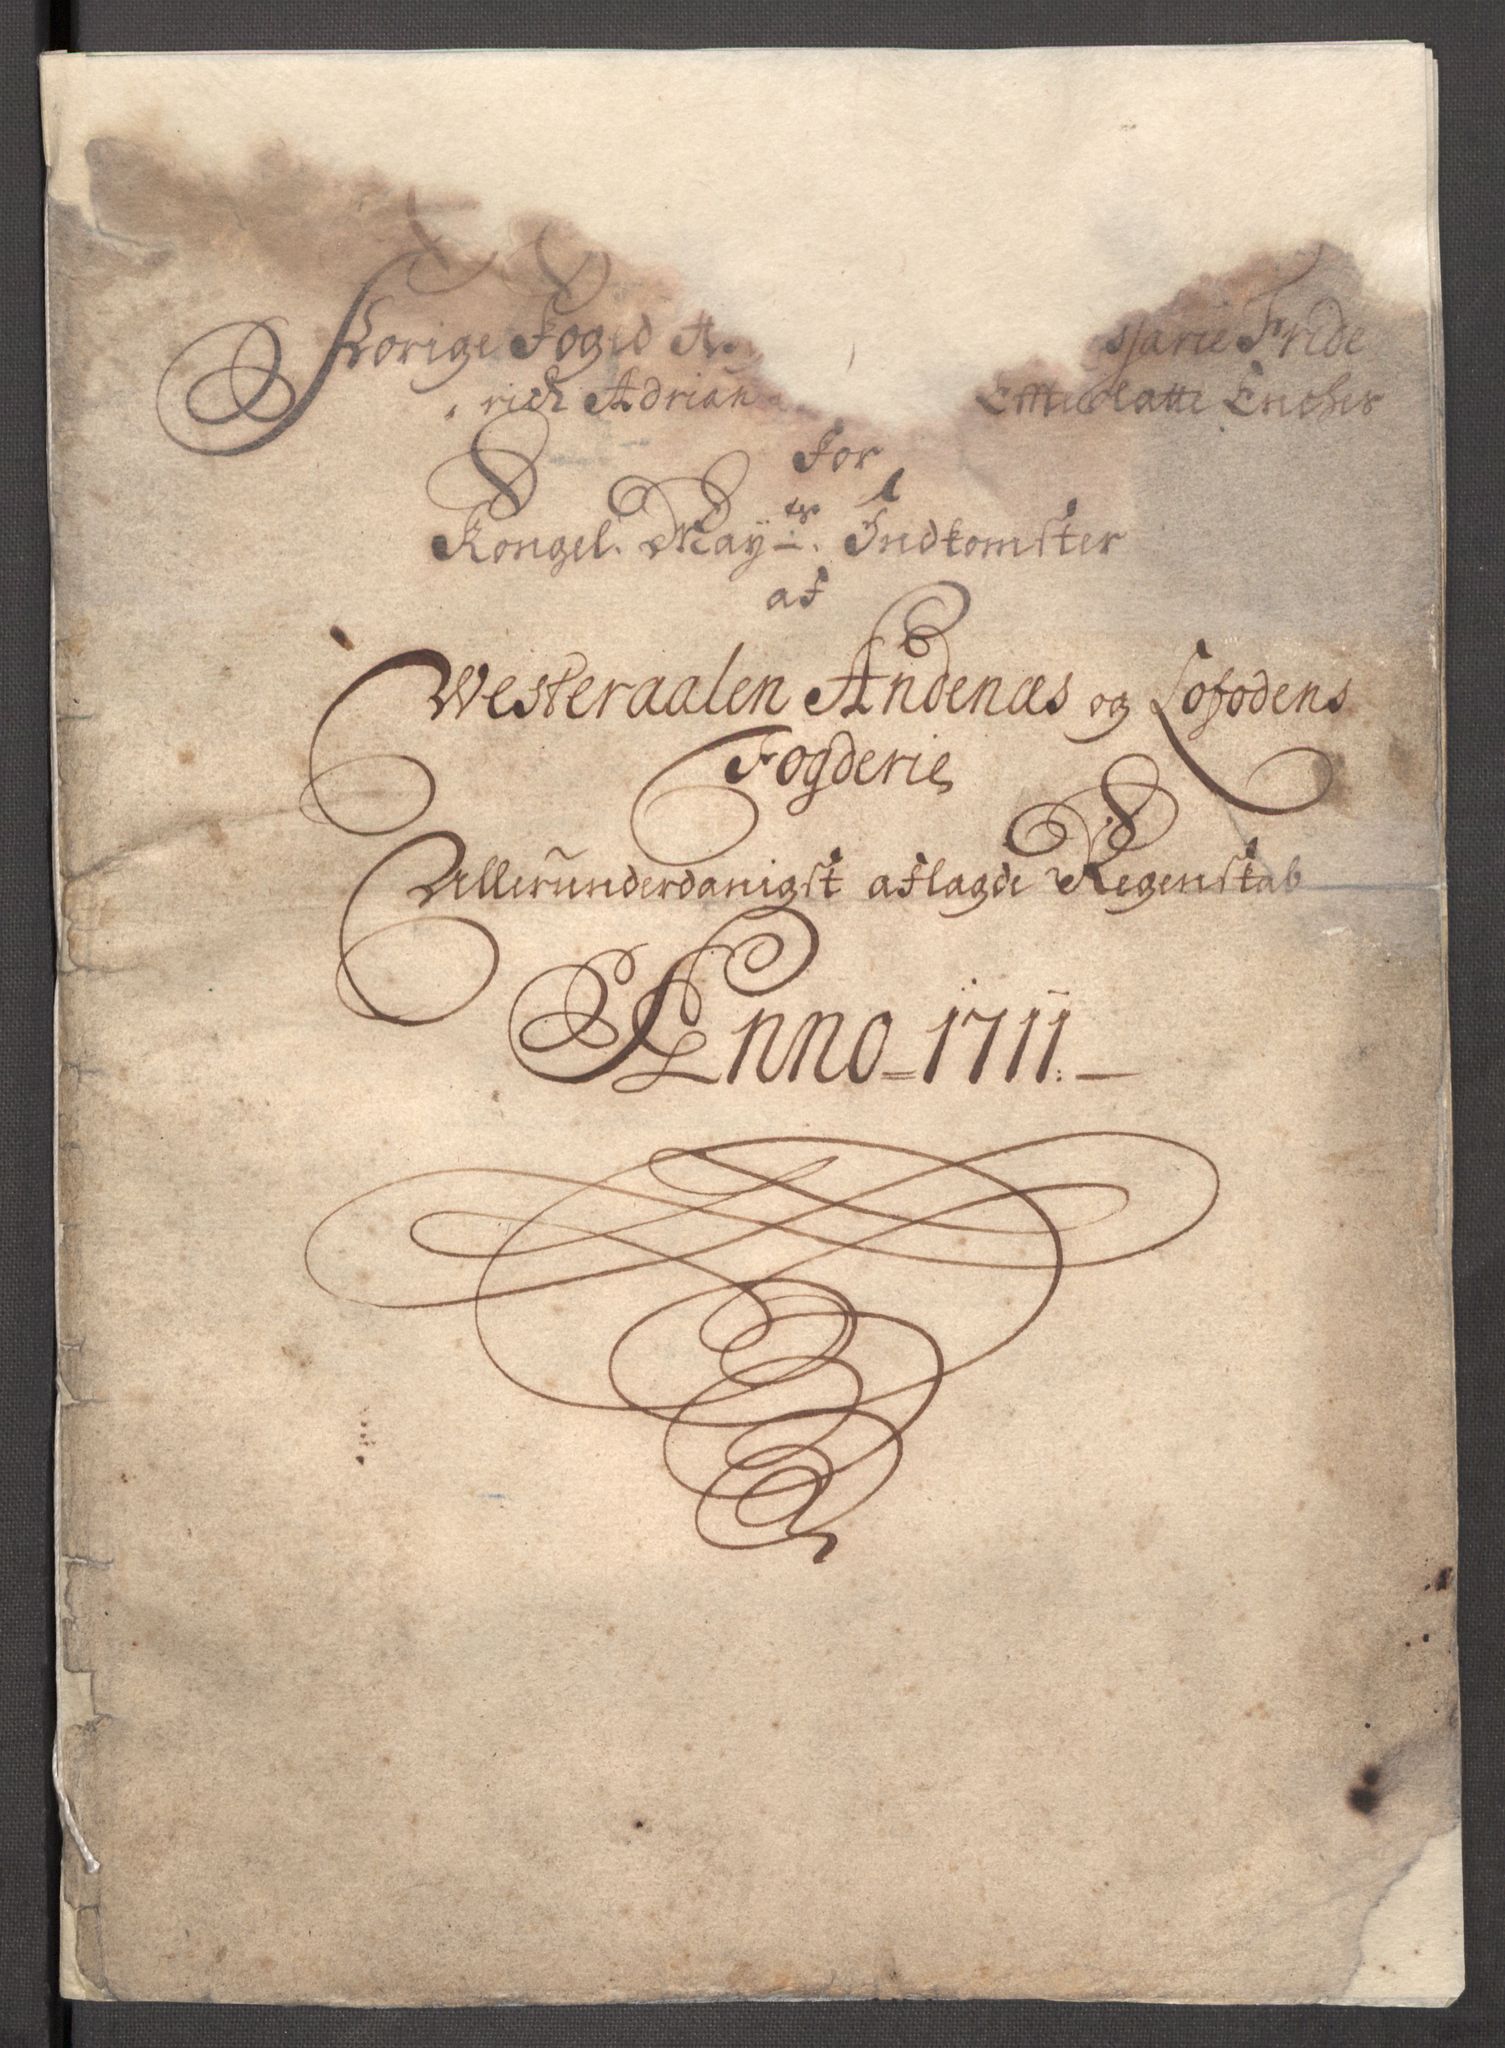 Forige Foged
rich Adrian Efterlatte Enches
For
Kongel. Mayts. Indkomster
af
Westeraalen Andenæs og Lofodens
Fogderie
Allerunderdanigst aflagde Regenskab
Anno 1711.